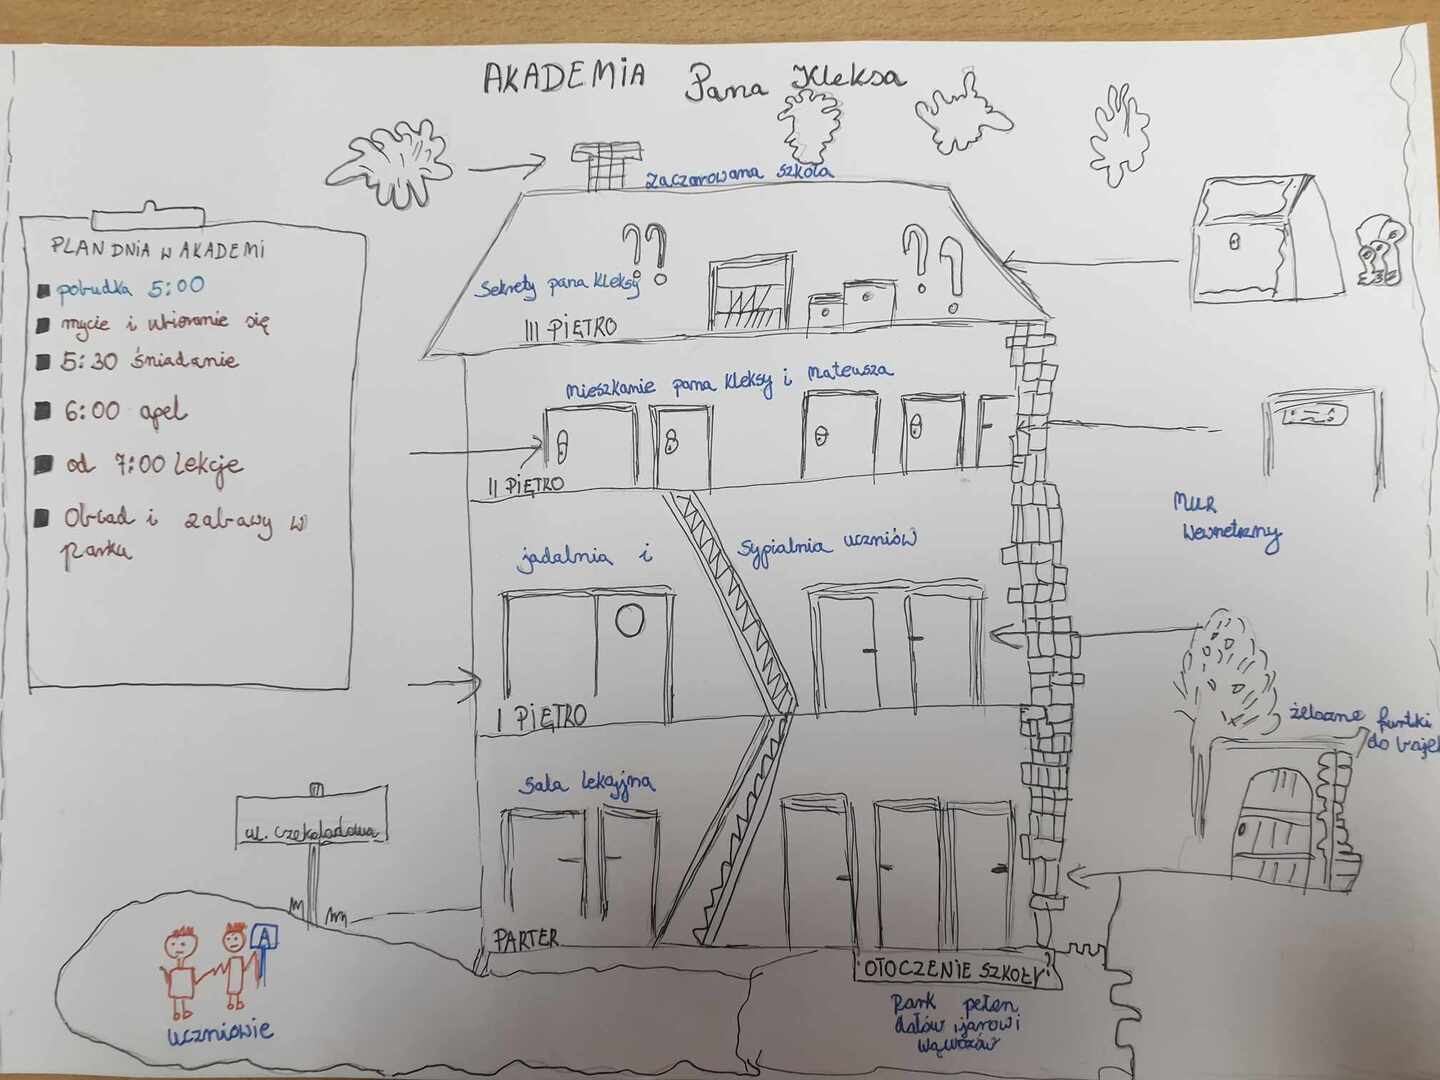 AKADEMIA Pana Kleksa
Zaczarowana szkoła
PLAN DNIA W AKADEMI
pobudka 5:00
mycie i ubieranie się
5:30 śniadanie
6:00 apel
od 7:00 lekcje
Obiad i zabawy w
parku
Sekrety pana Kleksy
?? ??
III PIĘTRO
Mieszkanie pana Kleksy i Mateusza
II PIĘTRO
jadalnia i sypialnia uczniów
I PIĘTRO
Sala lekcyjna
PARTER
MUR
Wewnetrzny
żelazne furtki
do bajek
ul. Czekoladowa
A
uczniowie
OTOCZENIE SZKOŁY
Park pełen
dołów, jarów i
wąwozów